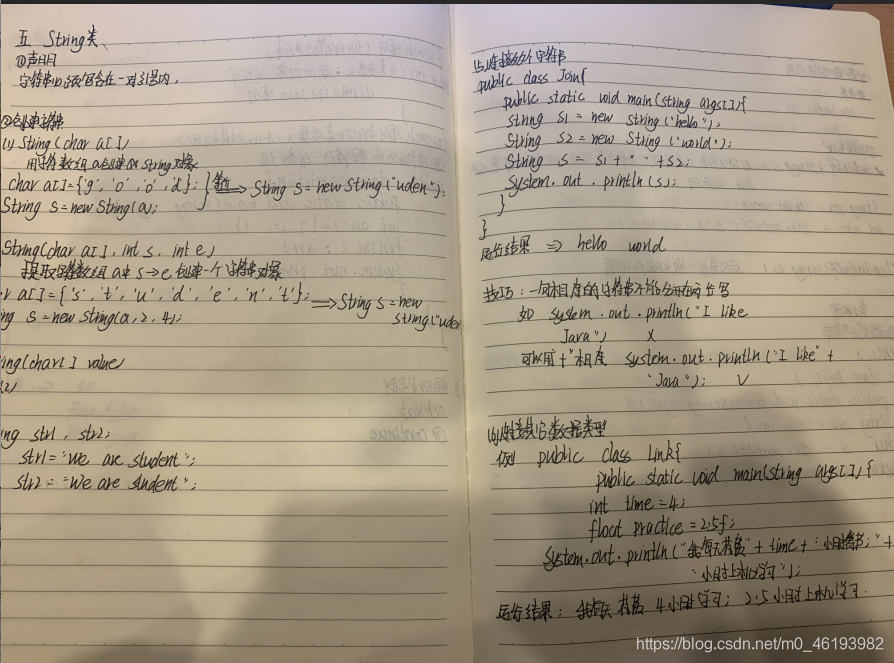 五 String类、
①声明
字符串必须包含在一对引号内,
②创建字符串
(1) String(char a[])
用字符数组a创建String对象
char a[]={'g', 'o', 'o', 'd'}; 等价 ⟹ String s=new String("uden");
String s=new String(a);
String(char a[], int s, int e)
提取字符数组a中 s→e 创建一个字符串对象
r a[]={'s', 't', 'u', 'd', 'e', 'n', 't'}; ⟹String s=new
ng s=new String(a, 2, 4); String("uden
ing(char[] value)
ng str1, str2;
str1="We are student";
str2="We are student";
(5)连接多个字符串
public class Join{
public static void main(string args[]){
String s1 = new string("hello");
String s2 = new String("world");
String s = s1+" "+s2;
System.out.println(s);
}
}
运行结果 ⟹ hello world
技巧:一句相连的字符串不能分开在两行写
如 system.out.println("I like
Java") X
可以用"+"相连 system.out.println("I like"+
"Java"); √
(6)连接其它数据类型
例 public class Link{
public static void main(string args[]){
int time=4;
floot practice=2.5f;
system.out.println("我每天花费"+time+"小时 "+
"小时上机学习");
运行结果:我每天花费 4小时学习;2.5小时上机学习.
https://blog.csdn.net/m0_46193982